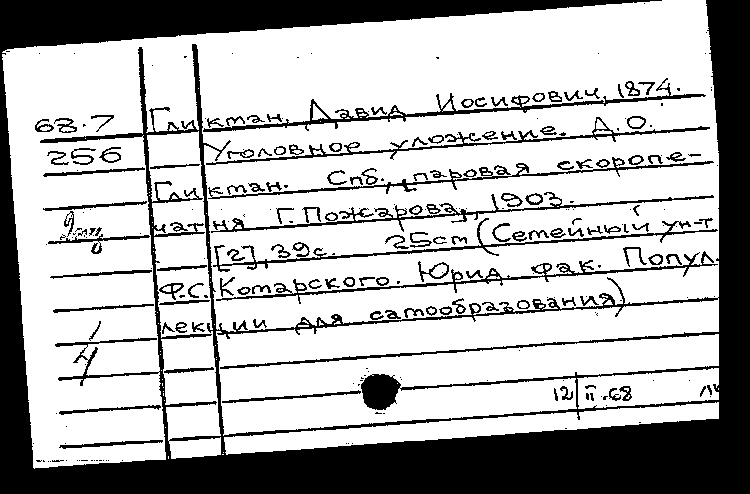 68.7 Гликман, Давид Иосифович, 1874.
256 Уголовное уложение. Д.О.
Гликман. Спб., паровая скоропе-
2 экз чатня Г. Пожарова, 1903.
[2], 39с. 25см (Семейный ун-т
Ф.С. Комарского. Юрид. фак. Попул.
лекции для самообразования)
1/4
12 II.68